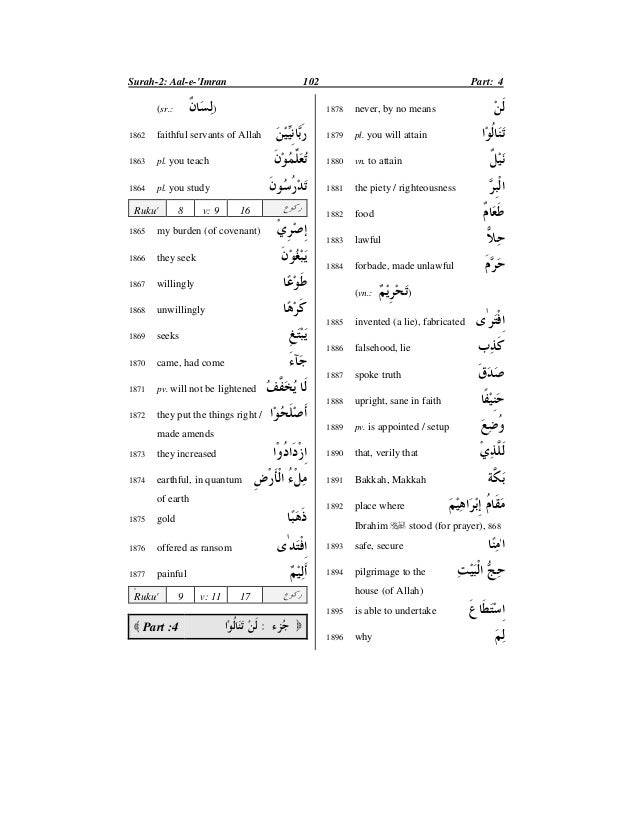 Surah-2: Aal-e-'Imran 102 Part: 4
(sr.: لِسَانٌ)
1862 faithful servants of Allah رَبَّانِيِّيْنَ
1863 pl. you teach تُعَلِّمُوْنَ
1864 pl. you study تَدْرُسُوْنَ
Ruku' 8 v: 9 16 ركوع
1865 my burden (of covenant) إِصْرِيْ
1866 they seek يَبْغُوْنَ
1867 willingly طَوْعًا
1868 unwillingly كَرْهًا
1869 seeks يَبْتَغِ
1870 came, had come جَآءَ
1871 pv. will not be lightened لَا يُخَفَّفُ
1872 they put the things right / أَصْلَحُوْا
made amends
1873 they increased ازْدَادُوْا
1874 earthful, in quantum مِلْءُ الْأَرْضِ
of earth
1875 gold ذَهَبًا
1876 offered as ransom اِفْتَدٰى
1877 painful أَلِيْمٌ
Ruku' 9 v: 11 17 ركوع
﴾ Part :4 جُزء : لَنْ تَنَالُوْا ﴿
1878 never, by no means لَنْ
1879 pl. you will attain تَنَالُوْا
1880 vn. to attain نَيْلٌ
1881 the piety / righteousness الْبِرَّ
1882 food طَعَامٌ
1883 lawful حِلاًّ
1884 forbade, made unlawful حَرَّمَ
(vn.: تَحْرِيْمٌ)
1885 invented (a lie), fabricated اِفْتَرٰى
1886 falsehood, lie كَذِب
1887 spoke truth صَدَقَ
1888 upright, sane in faith حَنِيْفًا
1889 pv. is appointed / setup وُضِعَ
1890 that, verily that لَلَّذِيْ
1891 Bakkah, Makkah بَكَّة
1892 place where مَقَامُ إِبْرَاهِيْمَ
Ibrahim ﷺ stood (for prayer), 868
1893 safe, secure اٰمِنًا
1894 pilgrimage to the حِجُّ الْبَيْتِ
house (of Allah)
1895 is able to undertake اِسْتَطَاعَ
1896 why لِمَ